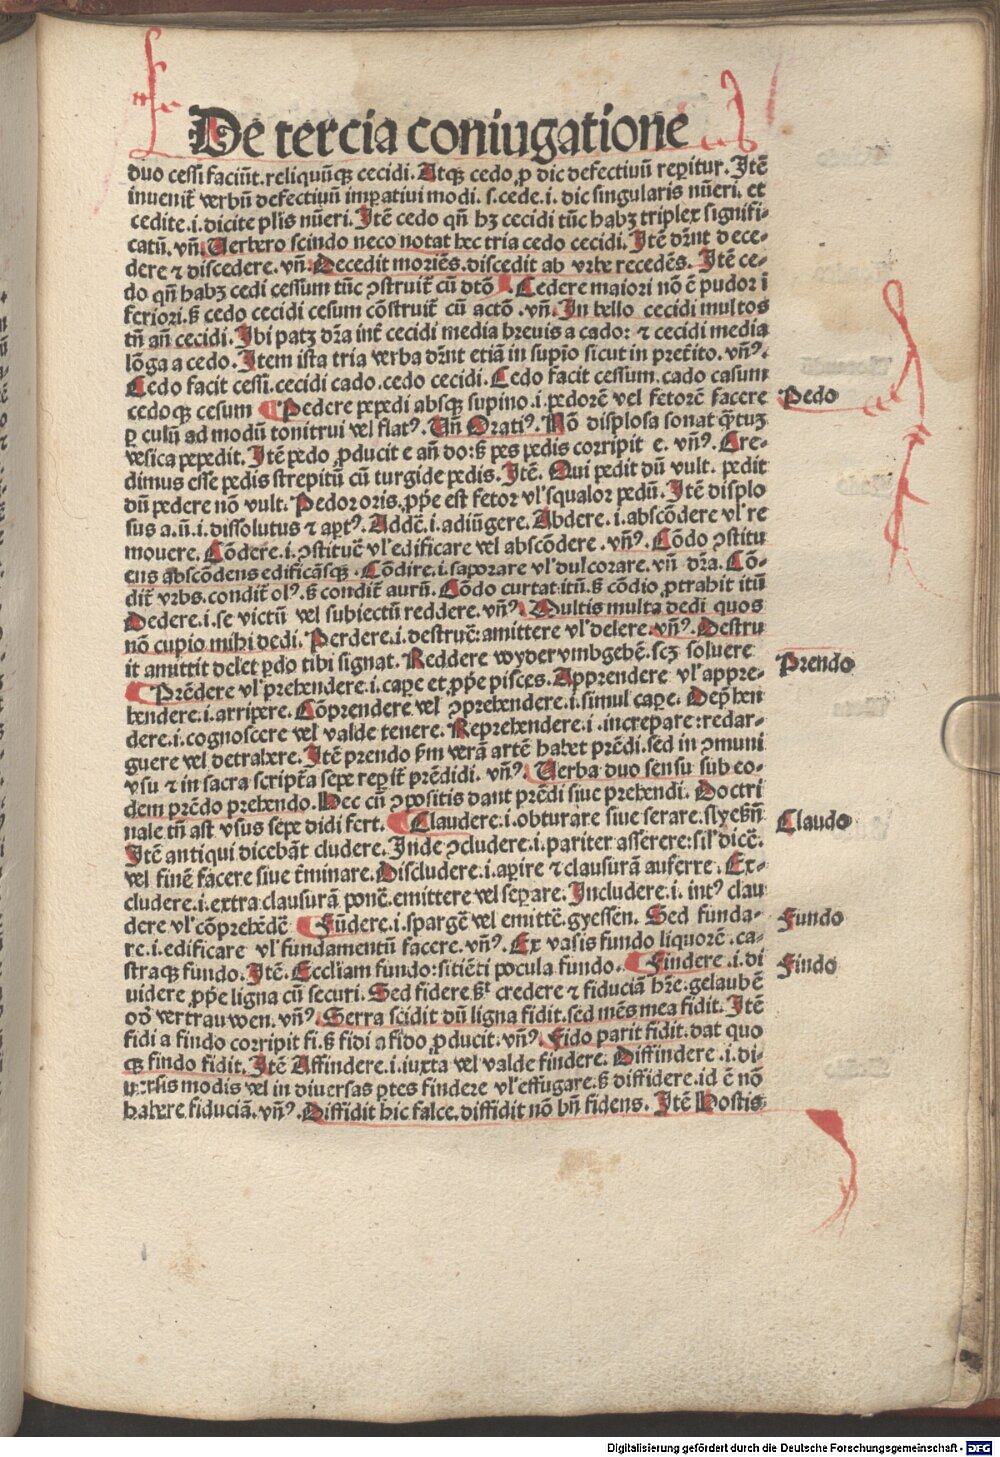 De tercia coniugatione
duo cessi faciūt.reliquūqꝫ cecidi. Atqꝫ cedo ꝓ dic defectiuū reꝑitur. Itē
inuenit̄ verbū defectiuū imꝑatiui modi. s. cede .i. dic singularis nūeri. et
cedite .i. dicite pl̄is nūeri. Itē cedo qn̄ hꝫ cecidi tūc habꝫ triplex signifi-
catū. vn̄. Uerbero scindo neco notat hec tria cedo cecidi. Itē dr̄nt dece-
dere ⁊ discedere. vn̄. Decedit moriēs. discedit ab vrbe recedēs. Itē ce-
do qn̄ habꝫ cedi cessum tūc ꝯstruit̄ cū dtō. Cedere maiori nō ē pudor ī
feriori. sꝫ cedo cecidi cesum cōstruit̄ cū actō .vn̄. In bello cecidi multos
tn̄ an̄ cecidi. Ibi patꝫ dr̄a int̄ cecidi media breuis a cado: ⁊ cecidi media
lōga a cedo. Item ista tria verba dr̄nt etiā in supīo sicut in pret̄ito. vn̄ꝰ.
Cedo facit cessi. cecidi cado. cedo cecidi. Cedo facit cessum. cado casum
cedoqꝫ cesum ¶ Pedere pepedi absqꝫ supino .i. pedorē vel fetorē facere
Pedo
ꝑ culū ad modū tonitrui vel flatꝰ. Un̄ Oratiꝰ. Nō displosa sonat q̄tuꝫ
vesica pepedit. Itē pedo ꝓducit e an̄ do: sꝫ pes pedis corripit e. vn̄ꝰ. Cre-
dimus esse pedis strepitū cū turgide pedis. Itē. Qui pedit dū vult. pedit
dū pedere nō vult. Pedor oris. ꝓp̄e est fetor vl̕ squalor pedū. Itē displo
sus a.ū.i. dissolutus ⁊ aꝑtꝰ. Addēʳ.i. adiūgere. Abdere .i. abscōdere vl̕ re
mouere. Cōdere .i. ꝯstituēʳ vl̕ edificare vel abscōdere .vn̄ꝰ. Cōdo ꝯstitu
ens abscōdens edificāsqꝫ. Cōdire .i. saporare vl̕ dulcorare. vn̄ dr̄a. Cō-
dit̄ vrbs. condit̄ olꝰ. sꝫ condit̄ aurū. Cōdo curtat itū. sꝫ cōdio ꝓtrahit itū
Dedere .i. se victū vel subiectū reddere. vn̄ꝰ. Multis multa dedi quos
nō cupio mihi dedi. Perdere .i. destruēʳ: amittere vl̕ delere. vn̄ꝰ. Destru
it amittit delet ꝑdo tibi signat. Reddere wyder vmbgebē. scꝫ soluere
¶ Prēdere vl̕ prehendere .i. caꝑe et ꝓp̄e pisces. Apprendere vl̕ appre-
Prendo
hendere .i. arriꝑere. Cōprendere vel ꝯprehendere .i. simul caꝑe. Dep̄hen
dere .i. cognoscere vel valde tenere. Reprehendere .i. increpare: redar-
guere vel detrahere. Itē prendo ẜm verā artē habet prēdi. sed in ꝯmuni
vsu ⁊ in sacra script̄a sepe reꝑit̄ prēdidi. vn̄ꝰ. Uerba duo sensu sub eo-
dem prēdo prehendo. Hec cū ꝯpositis dant prēdi siue prehendi. Doctri
nale tn̄ ast vsus sepe didi fert. ¶ Claudere .i. obturare siue serare. slyeßn̄
Claudo
Itē antiqui dicebāt cludere. Inde ꝯcludere .i. pariter asserere: sil̕ dicēʳ.
vel finē facere siue t̄minare. Discludere .i. aꝑire ⁊ clausurā auferre. Ex-
cludere .i. extra clausurā ponēʳ. emittere vel seꝑare. Includere .i. intꝰ clau
dere vl̕ cōprehēdēʳ ¶ Fūdere .i. spargēʳ vel emittēʳ. gyessen. Sed funda-
Fundo
re .i. edificare vl̕ fundamentū facere. vn̄ꝰ. Ex vasis fundo liquorē. ca-
straqꝫ fundo. Itē. Eccl̄iam fundo: sitiēti pocula fundo. ¶ Findere .i. di
Findo
uidere ꝓp̄e ligna cū securi. Sed fidere ẜꝫ credere ⁊ fiduciā hr̄e. gelaubē
odʼ vertrauwen. vn̄ꝰ. Serra scidit dū ligna fidit. sed mēs mea fidit. Itē
fidi a findo corripit fi. sꝫ fidi a fido ꝓducit. vn̄ꝰ. Fido parit fidit. dat quo
qꝫ findo fidit. Itē Affindere .i. iuxta vel valde findere. Diffindere .i. di-
uersis modis vel in diuersas ꝑtes findere vl̕ effugare. sꝫ diffidere. id ē nō
habere fiduciā. vn̄ꝰ. Diffidit hic falce. diffidit nō bn̄ fidens. Itē Hostis
Digitalisierung gefördert durch die Deutsche Forschungsgemeinschaft - DFG